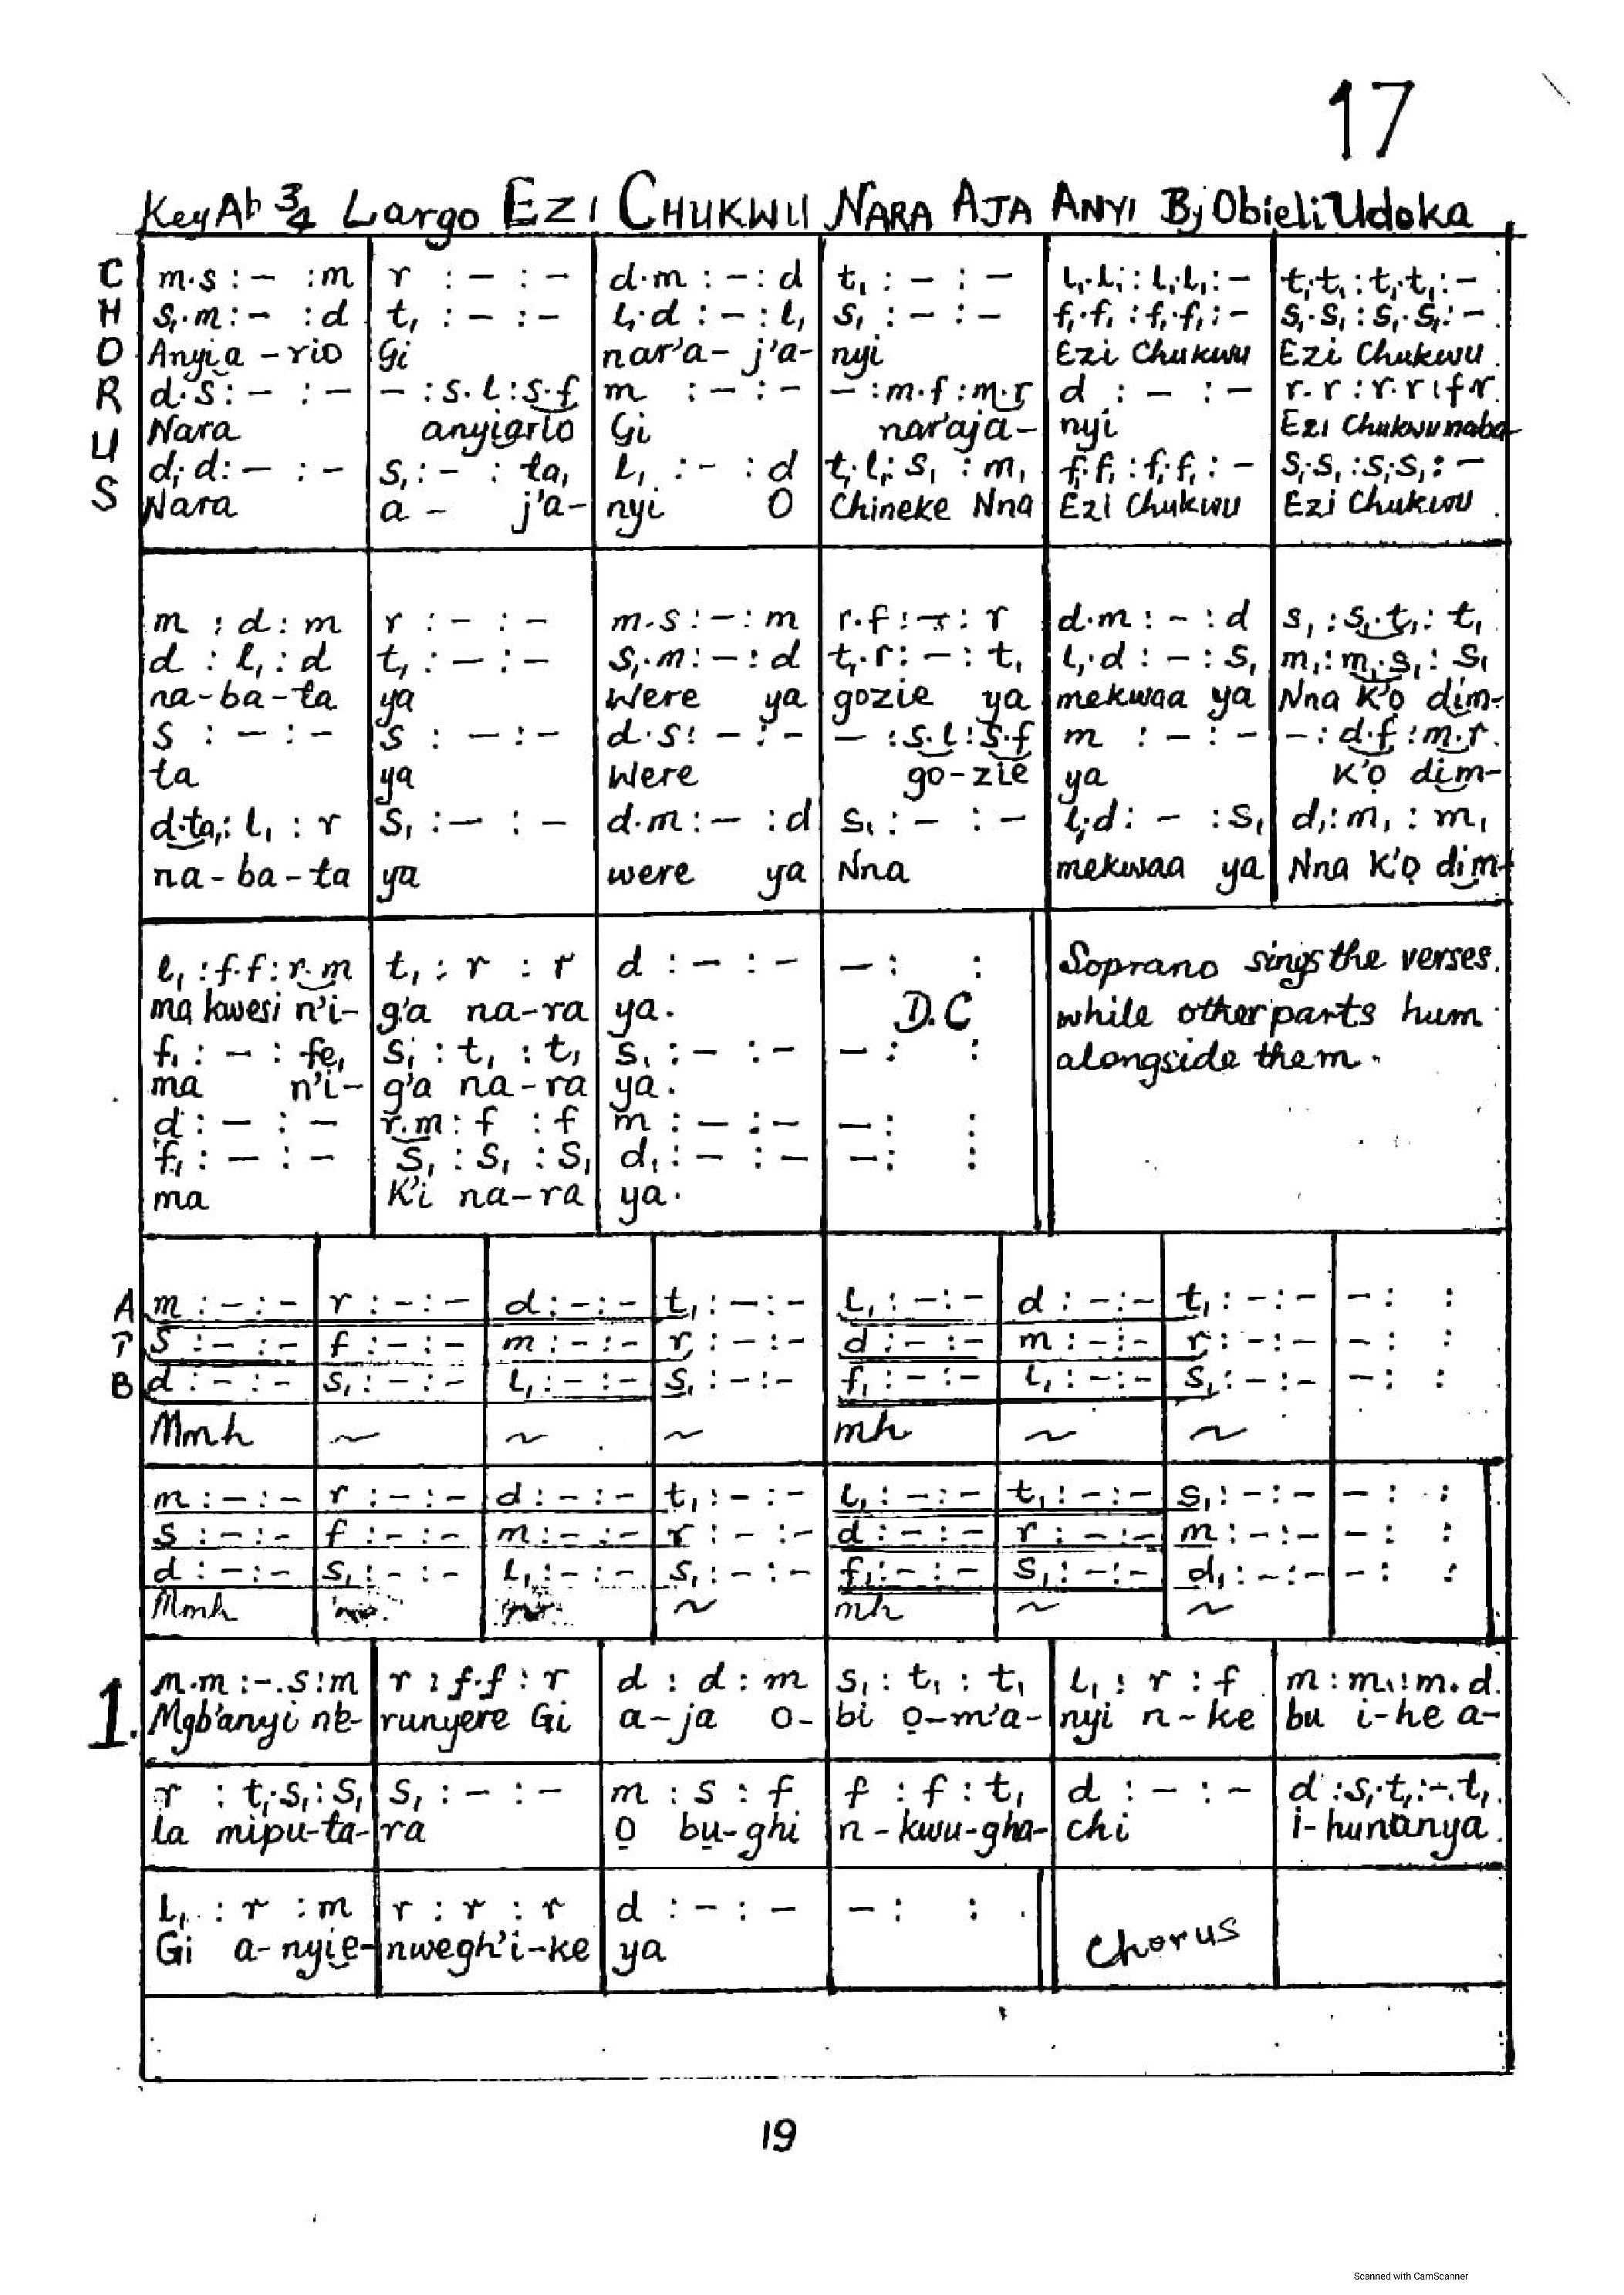 17
Key Ab 3/4 Largo EZI CHUKWU NARA AJA ANYI By Obieli Udoka
CHORUS
m.s : – : m | r : – : – | d.m : – : d | t₁ : – : – | l₁.l₁ : l₁.l₁ : – | t₁.t₁ : t₁.t₁ : –
s₁.m : – : d | t₁ : – : – | l₁.d : – : l₁ | s₁ : – : – | f₁.f₁ : f₁.f₁ : – | s₁.s₁ : s₁.s₁ : –
Anyịa – rịo | Gi | nar'a – j'a – | nyi | Ezi Chukwu | Ezi Chukwu
d.s : – : – | – : s.l : s.f | m : – : – | – : m.f : m.r | d : – : – | r.r : r.r : f.r
Nara | anyịarịo | Gi | nar'aja – | nyi | Ezi Chukwu naba
d.d : – : – | s₁ : – : ta₁ | l₁ : – : d | t₁.l₁ : s₁ : m₁ | f₁.f₁ : f₁.f₁ : – | s₁.s₁ : s₁.s₁ : –
Nara | a – j'a – | nyi O | Chineke Nna | Ezi Chukwu | Ezi Chukwu
m : d : m | r : – : – | m.s : – : m | r.f : – : r | d.m : – : d | s₁ : s₁.t₁ : t₁
d : l₁ : d | t₁ : – : – | s₁.m : – : d | t₁.r : – : t₁ | l₁.d : – : s₁ | m₁ : m₁.s₁ : s₁
na – ba – ta | ya | Were ya | gozie ya | mekwaa ya | Nna K'ọ dịm-
s : – : – | s : – : – | d.s : – : – | – : s.l : s.f | m : – : – | – : d.f : m.r
ta | ya | Were | go – zie | ya | K'ọ dịm-
d.ta₁ : l₁ : r | s₁ : – : – | d.m : – : d | s₁ : – : – | l₁.d : – : s₁ | d₁ : m₁ : m₁
na – ba – ta | ya | were ya | Nna | mekwaa ya | Nna K'ọ dịm-
l₁ : f.f : r.m | t₁ : r : r | d : – : – | – : : | Soprano sings the verses
ma kwesi n'i – | g'a na – ra | ya. | D.C | while other parts hum
f₁ : – : fe₁ | s₁ : t₁ : t₁ | s₁ : – : – | – : : | alongside them.
ma n'i – | g'a na – ra | ya.
d : – : – | r.m : f : f | m : – : – | – : :
f₁ : – : – | s₁ : s₁ : s₁ | d₁ : – : – | – : :
ma | K'i na – ra | ya.
A m : – : – | r : – : – | d : – : – | t₁ : – : – | l₁ : – : – | d : – : – | t₁ : – : – | – : :
T s : – : – | f : – : – | m : – : – | r : – : – | d : – : – | m : – : – | r : – : – | – : :
B d : – : – | s₁ : – : – | l₁ : – : – | s₁ : – : – | f₁ : – : – | l₁ : – : – | s₁ : – : – | – : :
Mmh | ~ | ~ | ~ | mh | ~ | ~
m : – : – | r : – : – | d : – : – | t₁ : – : – | l₁ : – : – | t₁ : – : – | s₁ : – : – | – : :
s : – : – | f : – : – | m : – : – | r : – : – | d : – : – | r : – : – | m : – : – | – : :
d : – : – | s₁ : – : – | l₁ : – : – | s₁ : – : – | f₁ : – : – | s₁ : – : – | d₁ : – : – | – : :
Mmh | ~ | mh | ~ | ~
1. m.m : –.s : m | r : f.f : r | d : d : m | s₁ : t₁ : t₁ | l₁ : r : f | m : m : m.d
Mgb'anyi ne – | runyere Gi | a – ja o – | bi ọ – m'a – | nyi n – ke | bu i – he a –
r : t₁.s₁ : s₁ | s₁ : – : – | m : s : f | f : f : t₁ | d : – : – | d : s₁.t₁ : –.t₁
la mipu – ta – | ra | Ọ bụ – ghi | n – kwu – gha – | chi | i – hunanya
l₁ : r : m | r : r : r | d : – : – | – : : | Chorus
Gi a – nyịe – | nwegh'i – ke | ya
19
Scanned with CamScanner